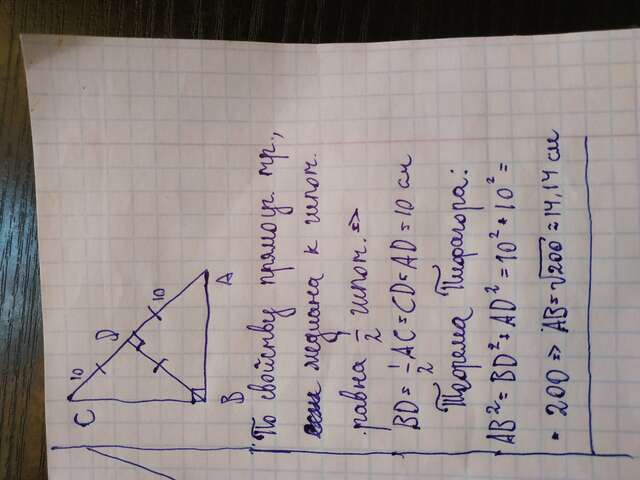 C
10
D
10
B
A
По свойству прямоуг. тр.,
медиана к гипот.
равна 1/2 гипот. =>
BD = 1/2 AC = CD = AD = 10 см
Теорема Пифагора:
AB² = BD² + AD² = 10² + 10² =
= 200 => AB = √200 = 14,14 см